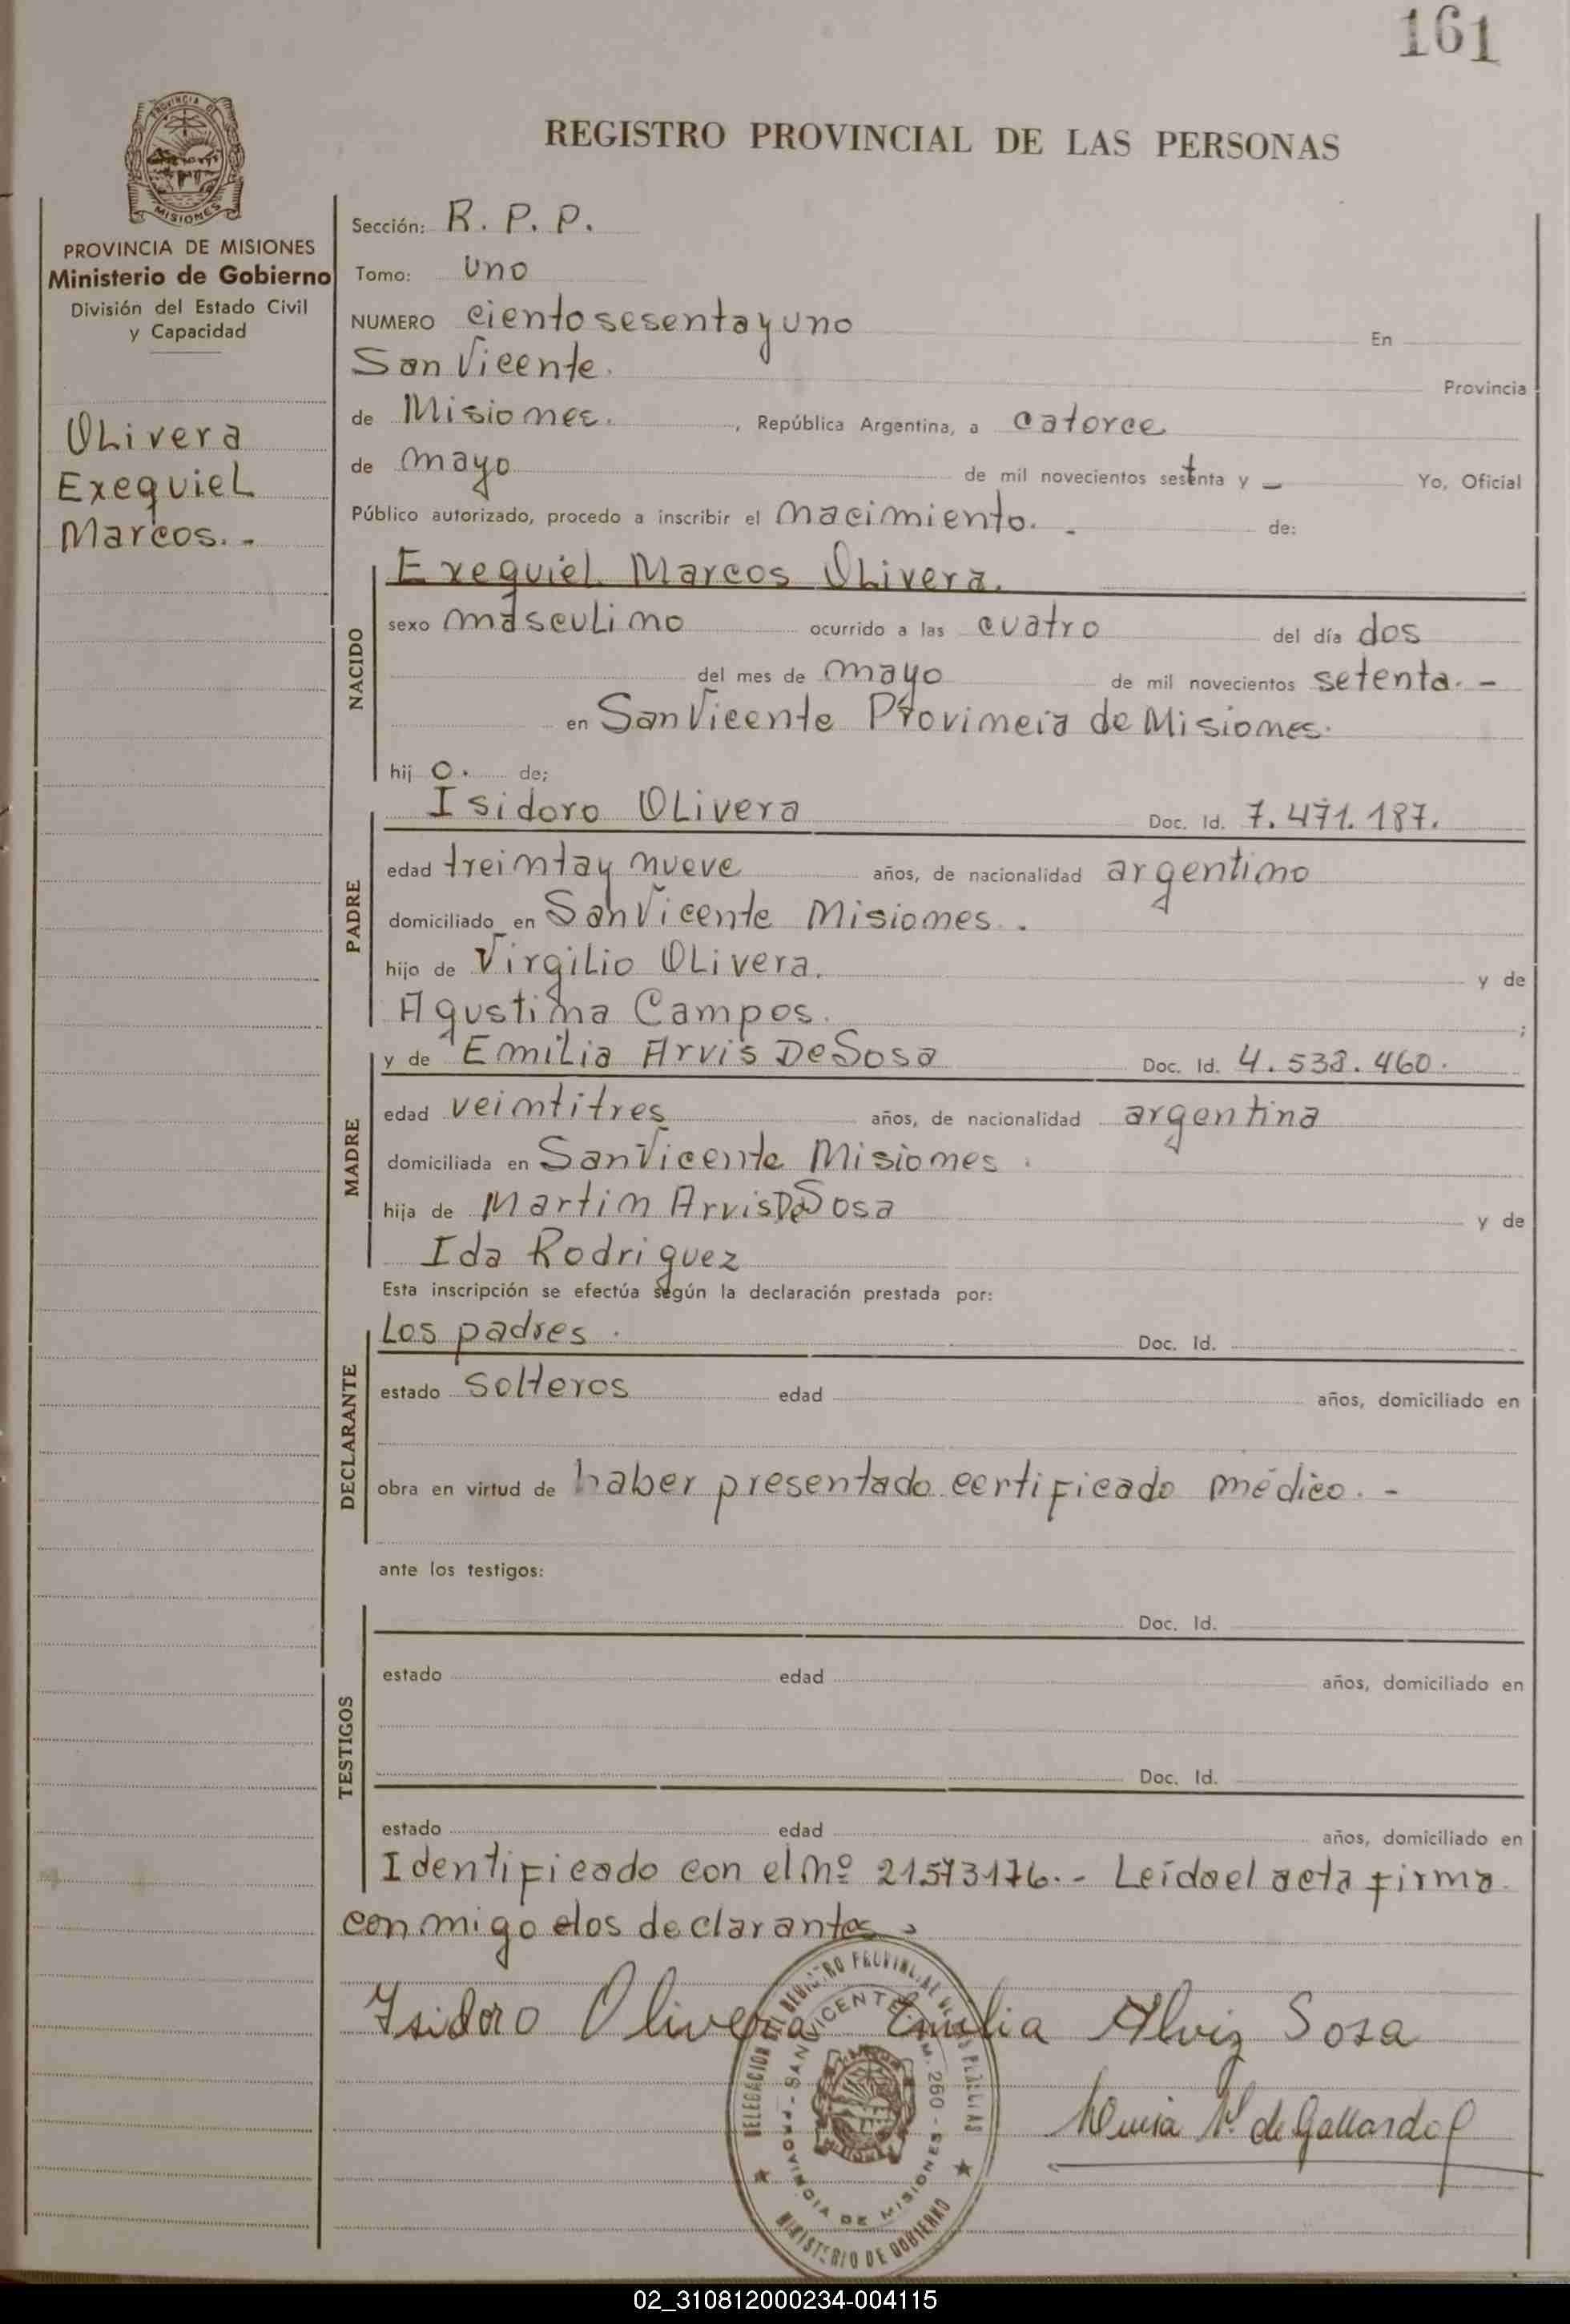 161
PROVINCIA DE
MISIONES
REGISTRO PROVINCIAL DE LAS PERSONAS
PROVINCIA DE MISIONES
Ministerio de Gobierno
División del Estado Civil
y Capacidad
OLivera
ExequieL
Marcos. -
Sección: R. P. P.
Tomo: uno
NUMERO ciento sesenta y uno En
San Vicente. Provincia
de Misiones. , República Argentina, a catorce
de mayo de mil novecientos setenta y — Yo, Oficial
Público autorizado, procedo a inscribir el nacimiento. - de:
NACIDO
Exequiel Marcos OLivera.
sexo mascuLino ocurrido a las cuatro del día dos
del mes de mayo de mil novecientos setenta. -
en San Vicente Provincia de Misiones.
hij o. de;
PADRE
Isidoro OLivera Doc. Id. 7.471.187.
edad treinta y nueve años, de nacionalidad argentino
domiciliado en San Vicente Misiones.
hijo de VirgiLio OLivera. y de
Agustina Campos. ;
MADRE
y de EmiLia Arvis De Sosa Doc. Id. 4.538.460.
edad veintitres años, de nacionalidad argentina
domiciliada en San Vicente Misiones.
hija de Martin Arvis De Sosa y de
Ida Rodriguez
Esta inscripción se efectúa según la declaración prestada por:
DECLARANTE
Los padres. Doc. Id.
estado solteros edad años, domiciliado en
obra en virtud de haber presentado certificado médico. -
ante los testigos:
TESTIGOS
Doc. Id.
estado edad años, domiciliado en
Doc. Id.
estado edad años, domiciliado en
Identificado con el Nº 21573176.- Leída el acta firma
conmigo los declarantes.
Isidoro Olivera Emilia Alviz Sosa
de Gallardo
DELEGACION DEL REGISTRO PROVINCIAL DE LAS PERSONAS
SAN VICENTE
260
PROVINCIA DE MISIONES
MINISTERIO DE GOBIERNO
02_310812000234-004115